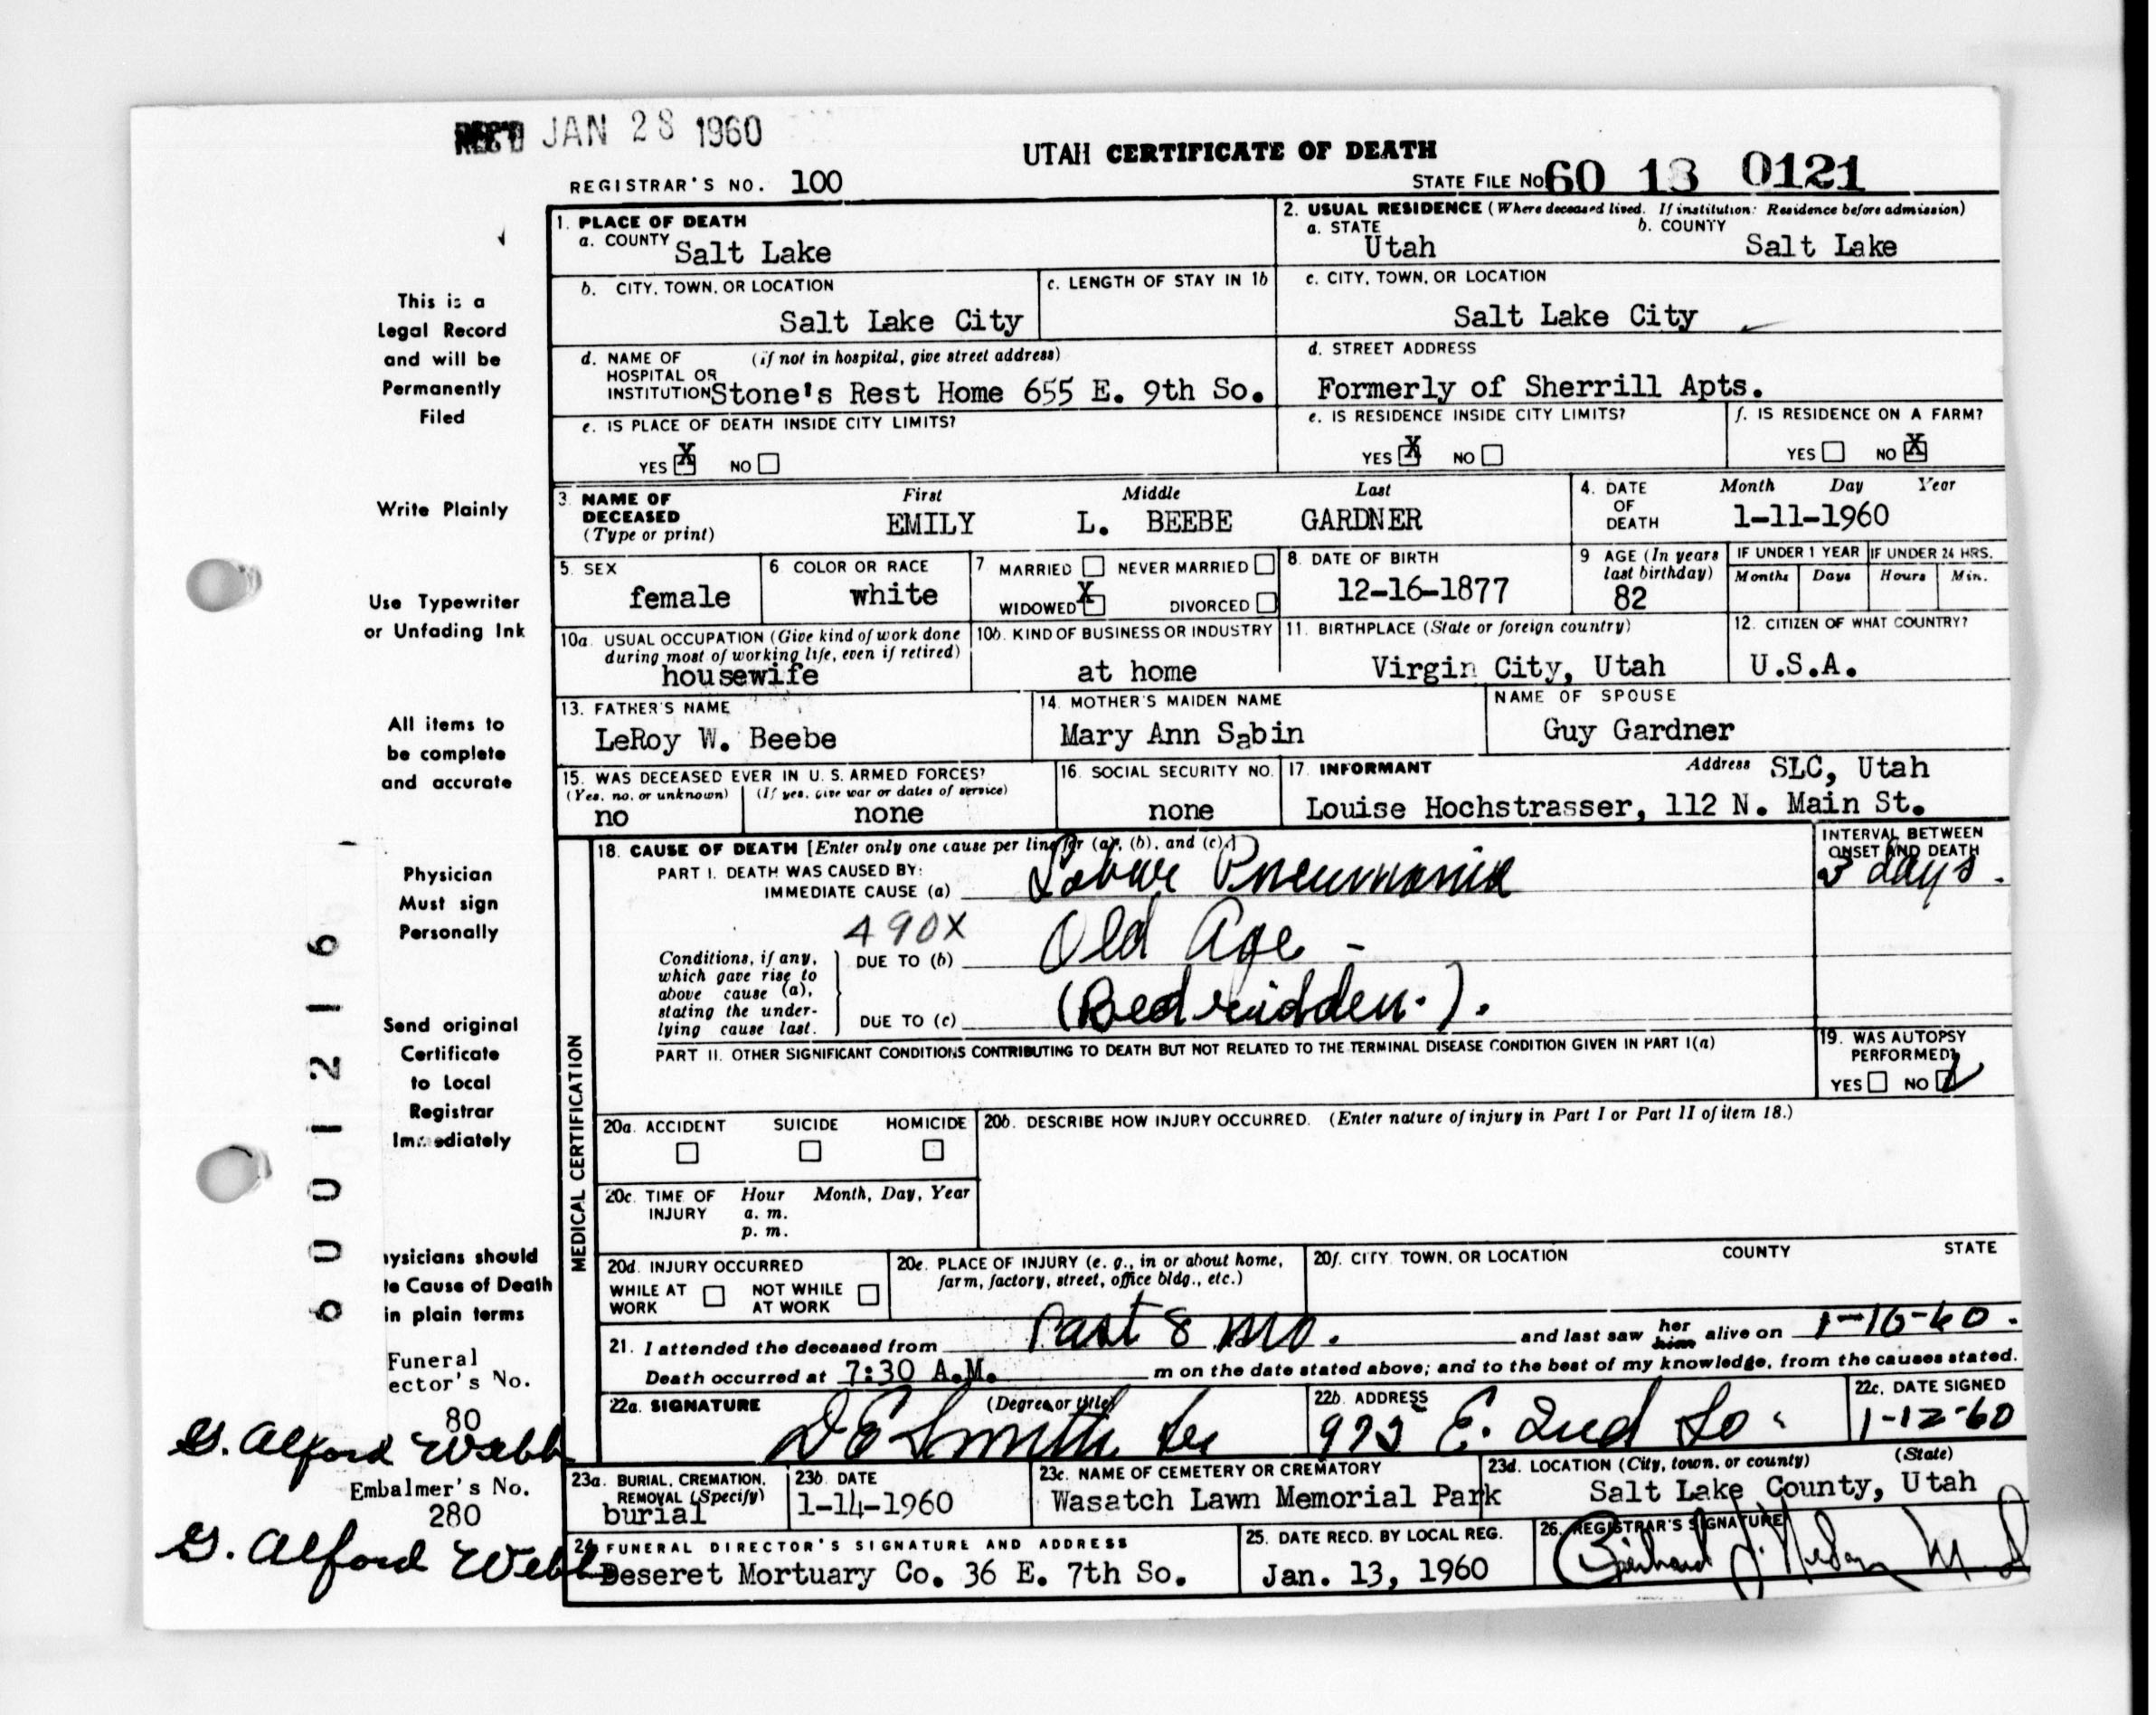 REC'D JAN 28 1960
UTAH CERTIFICATE OF DEATH
REGISTRAR'S NO. 100
STATE FILE NO. 60 13 0121
1. PLACE OF DEATH
a. COUNTY Salt Lake
2. USUAL RESIDENCE (Where deceased lived. If institution: Residence before admission)
a. STATE Utah b. COUNTY Salt Lake
b. CITY, TOWN, OR LOCATION Salt Lake City
c. LENGTH OF STAY IN 1b
c. CITY, TOWN, OR LOCATION Salt Lake City
d. NAME OF (if not in hospital, give street address)
HOSPITAL OR
INSTITUTION Stone's Rest Home 655 E. 9th So.
d. STREET ADDRESS
Formerly of Sherrill Apts.
e. IS PLACE OF DEATH INSIDE CITY LIMITS?
YES X NO
e. IS RESIDENCE INSIDE CITY LIMITS?
YES X NO
f. IS RESIDENCE ON A FARM?
YES NO X
3. NAME OF DECEASED (Type or print) First Middle Last
EMILY L. BEEBE GARDNER
4. DATE OF DEATH Month Day Year
1-11-1960
5. SEX female
6. COLOR OR RACE white
7 MARRIED NEVER MARRIED
WIDOWED X DIVORCED
8. DATE OF BIRTH 12-16-1877
9 AGE (In years last birthday) 82
IF UNDER 1 YEAR Months Days
IF UNDER 24 HRS. Hours Min.
10a. USUAL OCCUPATION (Give kind of work done during most of working life, even if retired)
housewife
10b. KIND OF BUSINESS OR INDUSTRY
at home
11. BIRTHPLACE (State or foreign country)
Virgin City, Utah
12. CITIZEN OF WHAT COUNTRY?
U.S.A.
13. FATHER'S NAME
LeRoy W. Beebe
14. MOTHER'S MAIDEN NAME
Mary Ann Sabin
NAME OF SPOUSE
Guy Gardner
15. WAS DECEASED EVER IN U. S. ARMED FORCES?
(Yes, no, or unknown) (If yes, give war or dates of service)
no none
16. SOCIAL SECURITY NO.
none
17. INFORMANT Address SLC, Utah
Louise Hochstrasser, 112 N. Main St.
MEDICAL CERTIFICATION
18. CAUSE OF DEATH [Enter only one cause per line for (a), (b), and (c).]
PART I. DEATH WAS CAUSED BY:
IMMEDIATE CAUSE (a) Lobar Pneumonia
INTERVAL BETWEEN ONSET AND DEATH
3 days.
490X
Conditions, if any, which gave rise to above cause (a), stating the underlying cause last.
DUE TO (b) Old Age -
DUE TO (c) (Bedridden.).
PART II. OTHER SIGNIFICANT CONDITIONS CONTRIBUTING TO DEATH BUT NOT RELATED TO THE TERMINAL DISEASE CONDITION GIVEN IN PART I(a)
19. WAS AUTOPSY PERFORMED?
YES NO
20a. ACCIDENT SUICIDE HOMICIDE
20b. DESCRIBE HOW INJURY OCCURRED. (Enter nature of injury in Part I or Part II of item 18.)
20c. TIME OF INJURY Hour Month, Day, Year
a. m.
p. m.
20d. INJURY OCCURRED
WHILE AT WORK NOT WHILE AT WORK
20e. PLACE OF INJURY (e. g., in or about home, farm, factory, street, office bldg., etc.)
20f. CITY, TOWN, OR LOCATION COUNTY STATE
21. I attended the deceased from Past 8 mo. and last saw her him alive on 1-10-60.
Death occurred at 7:30 A.M. m on the date stated above; and to the best of my knowledge, from the causes stated.
22a. SIGNATURE (Degree or title)
D E Smith
22b. ADDRESS
E. 2nd So.
22c. DATE SIGNED
1-12-60
23a. BURIAL, CREMATION, REMOVAL (Specify)
burial
23b. DATE
1-14-1960
23c. NAME OF CEMETERY OR CREMATORY
Wasatch Lawn Memorial Park
23d. LOCATION (City, town, or county) (State)
Salt Lake County, Utah
24. FUNERAL DIRECTOR'S SIGNATURE AND ADDRESS
Deseret Mortuary Co. 36 E. 7th So.
25. DATE RECD. BY LOCAL REG.
Jan. 13, 1960
26. REGISTRAR'S SIGNATURE
This is a
Legal Record
and will be
Permanently
Filed
Write Plainly
Use Typewriter
or Unfading Ink
All items to
be complete
and accurate
Physician
Must sign
Personally
Send original
Certificate
to Local
Registrar
Immediately
ysicians should
te Cause of Death
in plain terms
Funeral
ector's No.
80
G. Alford Webb
Embalmer's No.
280
G. Alford Webb
6001216